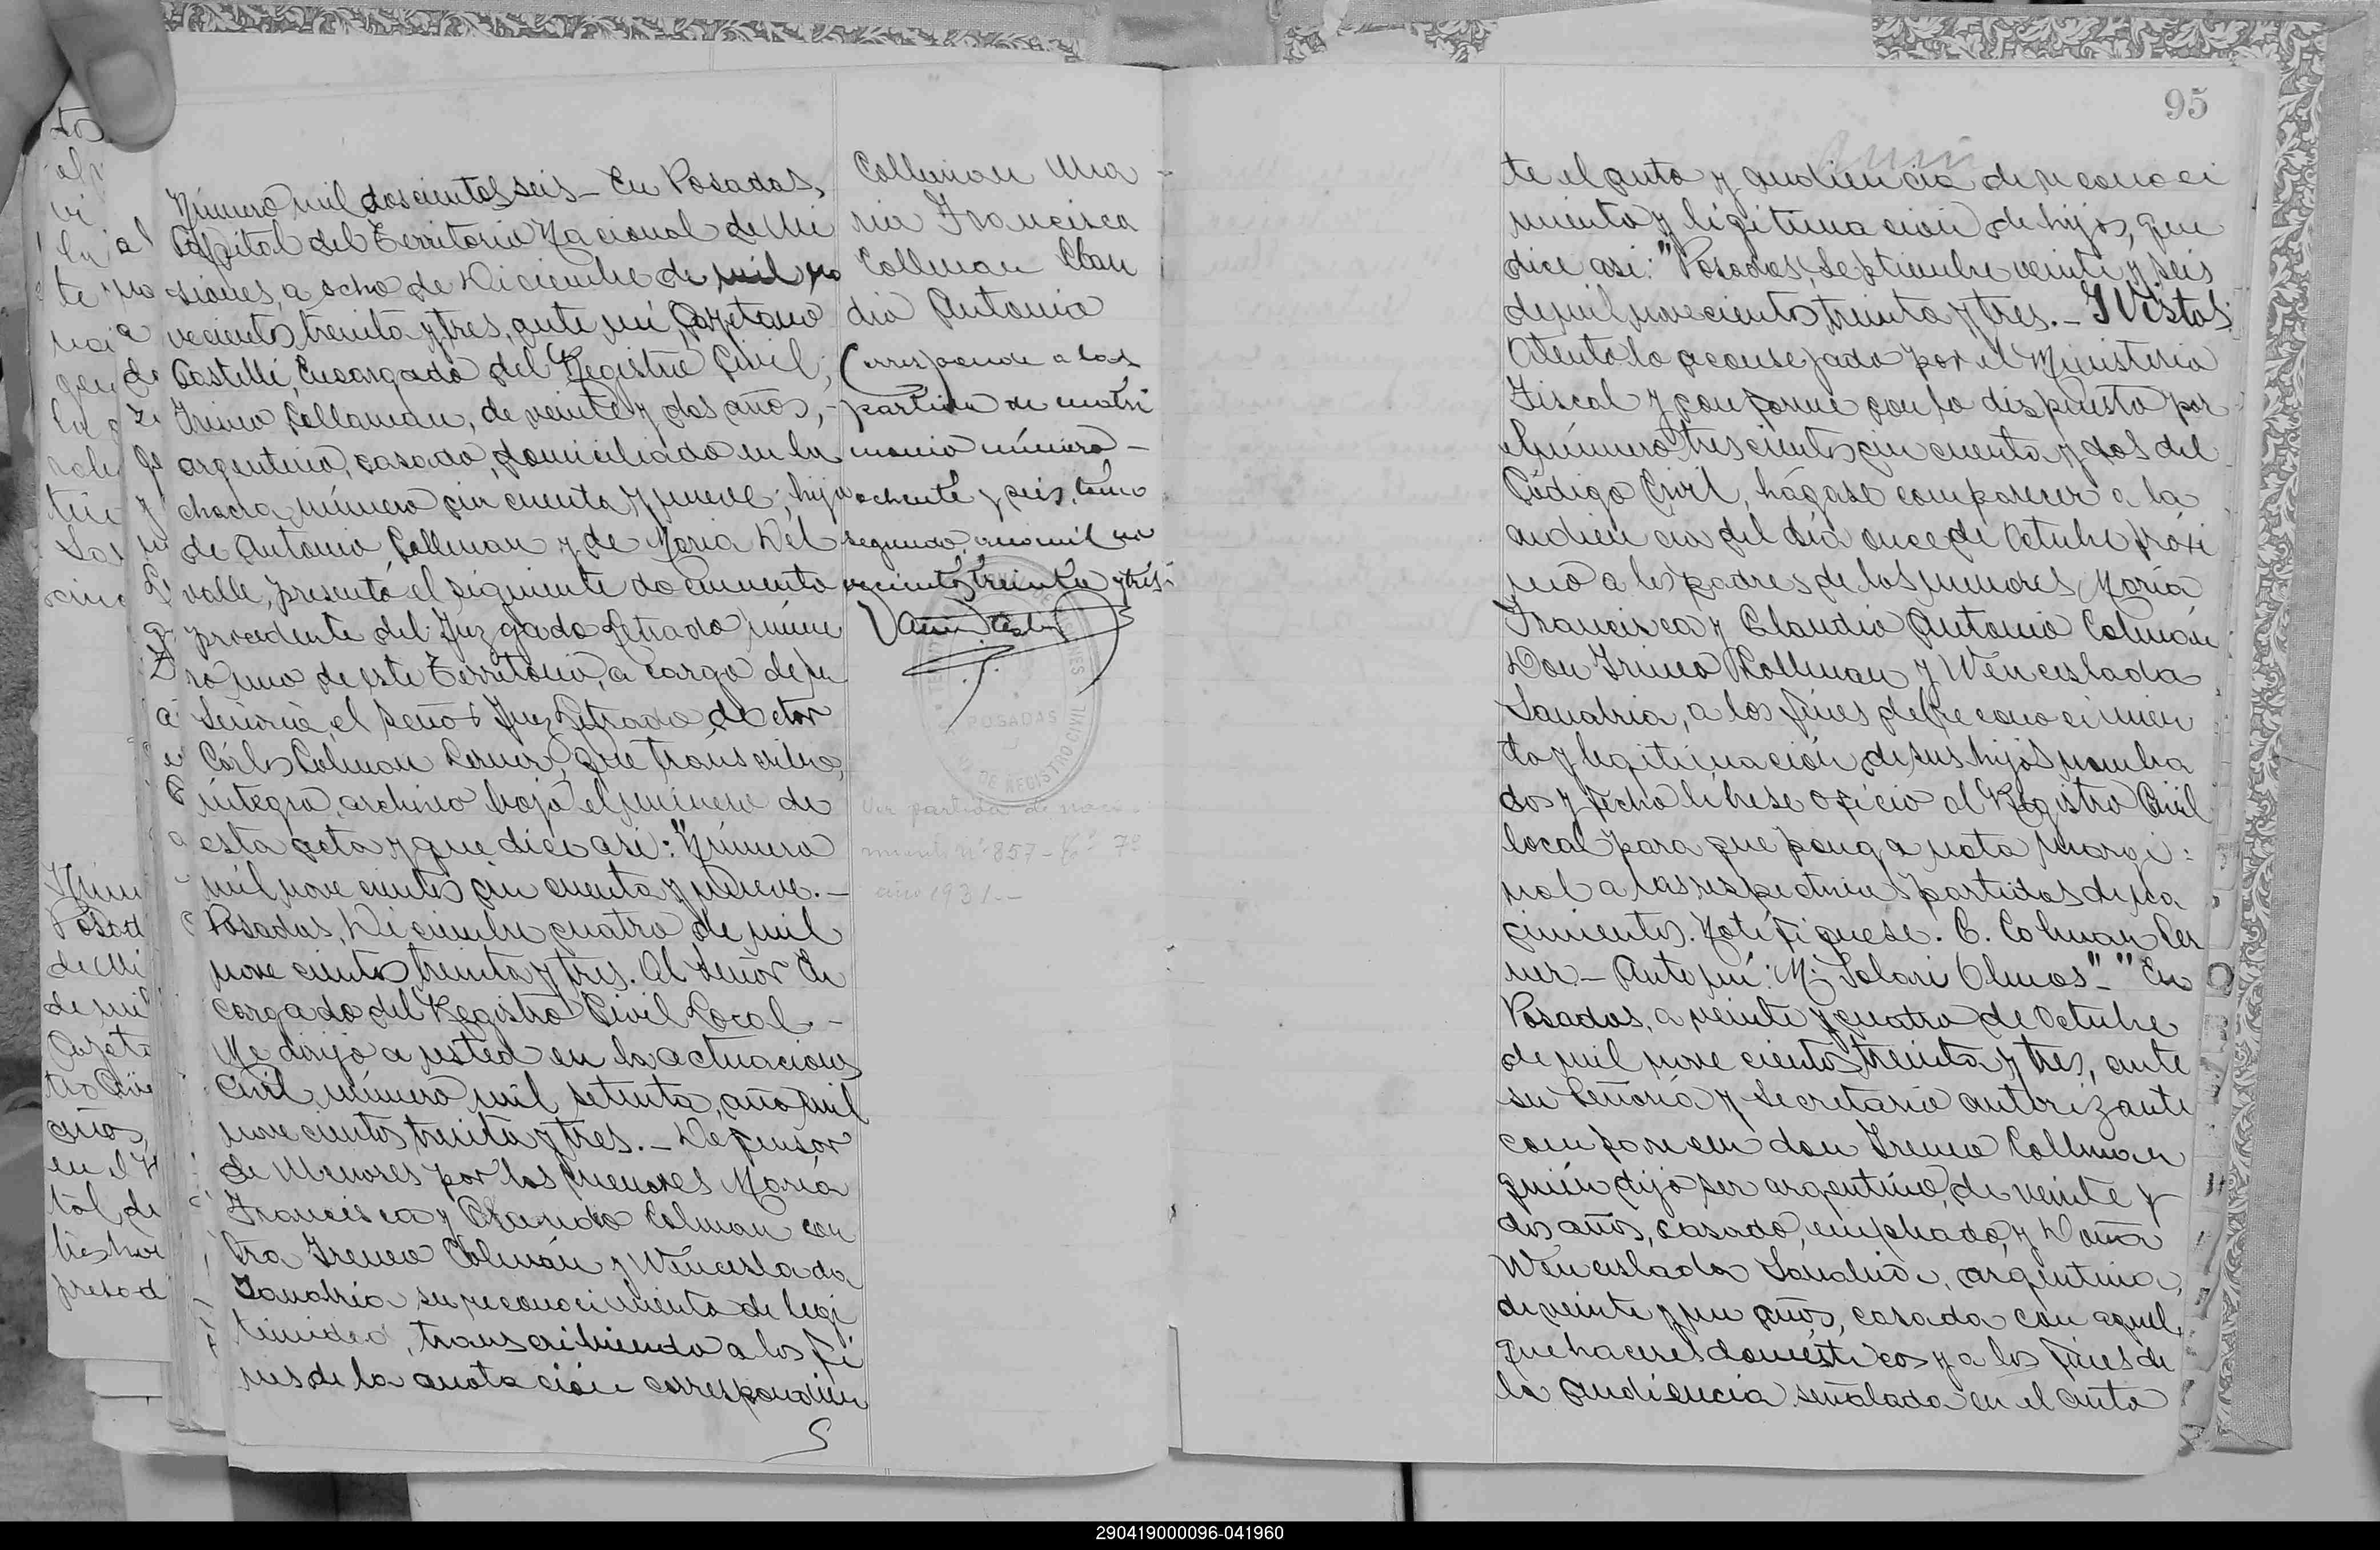 Número mil doscientos seis – En Posadas,
Capital del Territorio Nacional de Mi
siones, a ocho de Diciembre de mil no
vecientos treinta y tres, ante mi, Cayetano
Castelli, Encargado del Registro Civil;
Ireneo Collman, de veinte y dos años,
argentino, casado, domiciliado en la
chacra número cincuenta y nueve; hijo
de Antonio Collman y de Maria Del
valle, presentó el siguiente documento
procedente del Juzgado Letrado núme
ro uno de este Territorio, a cargo de su
Señoria, el Señor Juez Letrado doctor
Cárlos Colman Lerner, que transcribo,
integro, archivo bajo el número de
esta acta y que dice asi: "Número
mil nove cientos cin cuenta y nueve.–
Posadas, Diciembre cuatro de mil
nove cientos treinta y tres. Al Señor En
cargado del Registro Civil Local –
Me dirijo a usted en la actuaciones
civil número mil setenta, año mil
nove cientos treinta y tres.– Defensor
de Menores por los menores María
Francisca y Claudio Colman con
tra Ireneo Colmán y Wenceslada
Sanabria su reconocimiento de legi
timidad, transcribiendo a los fi
nes de la anotación correspondien
Collman Ma
ria Francisca
Collman Clau
dio Antonio
Corresponde a las
partida de matri
monio número –
ochenta y seis, tomo
segundo, año mil no
vecientos treinta y tres
POSADAS
DE REGISTRO CIVIL
Ver partida de naci
miento Nº 857 – Tº 73
año 1931.–
95
te el auto y audiencia de reconoci
miento y legitimación de hijos, que
dice asi: "Posadas, Septiembre veinte y seis
de mil nove cientos treinta y tres.– Y Vistos:
Atento lo aconsejado por el Ministerio
Fiscal y conforme con lo dispuesto por
el número trescientos cin cuenta y dos del
Código Civil, hágase comparecer a la
audiencia del día once de Octubre próxi
mo a los padres de los menores María
Francisca y Claudio Antonio Colmán
Don Ireneo Collman y Wenceslada
Sanabria, a los fines de reconocimien
to y legitimación de sus hijos nombra
dos y fecho líbrese oficio al Registro Civil
local para que ponga nota margi:
nal a las respectivas partidas de na
cimientos. Notifiquese. C. Colman Ler
ner – Ante mí: M. Solari Olmos" – "En
Posadas, a veinte y cuatro de Octubre
de mil nove cientos treinta y tres, ante
su Señoría y Secretario autorizante
comparecen don Ireneo Collman
quién dijo ser argentino, de veinte y
dos años, casado, empleado, y Doña
Wenceslada Sanabria, argentina,
de veinte y un años, casada con aquel,
quehaceres domésticos y a los fines de
la audiencia señalada en el auto